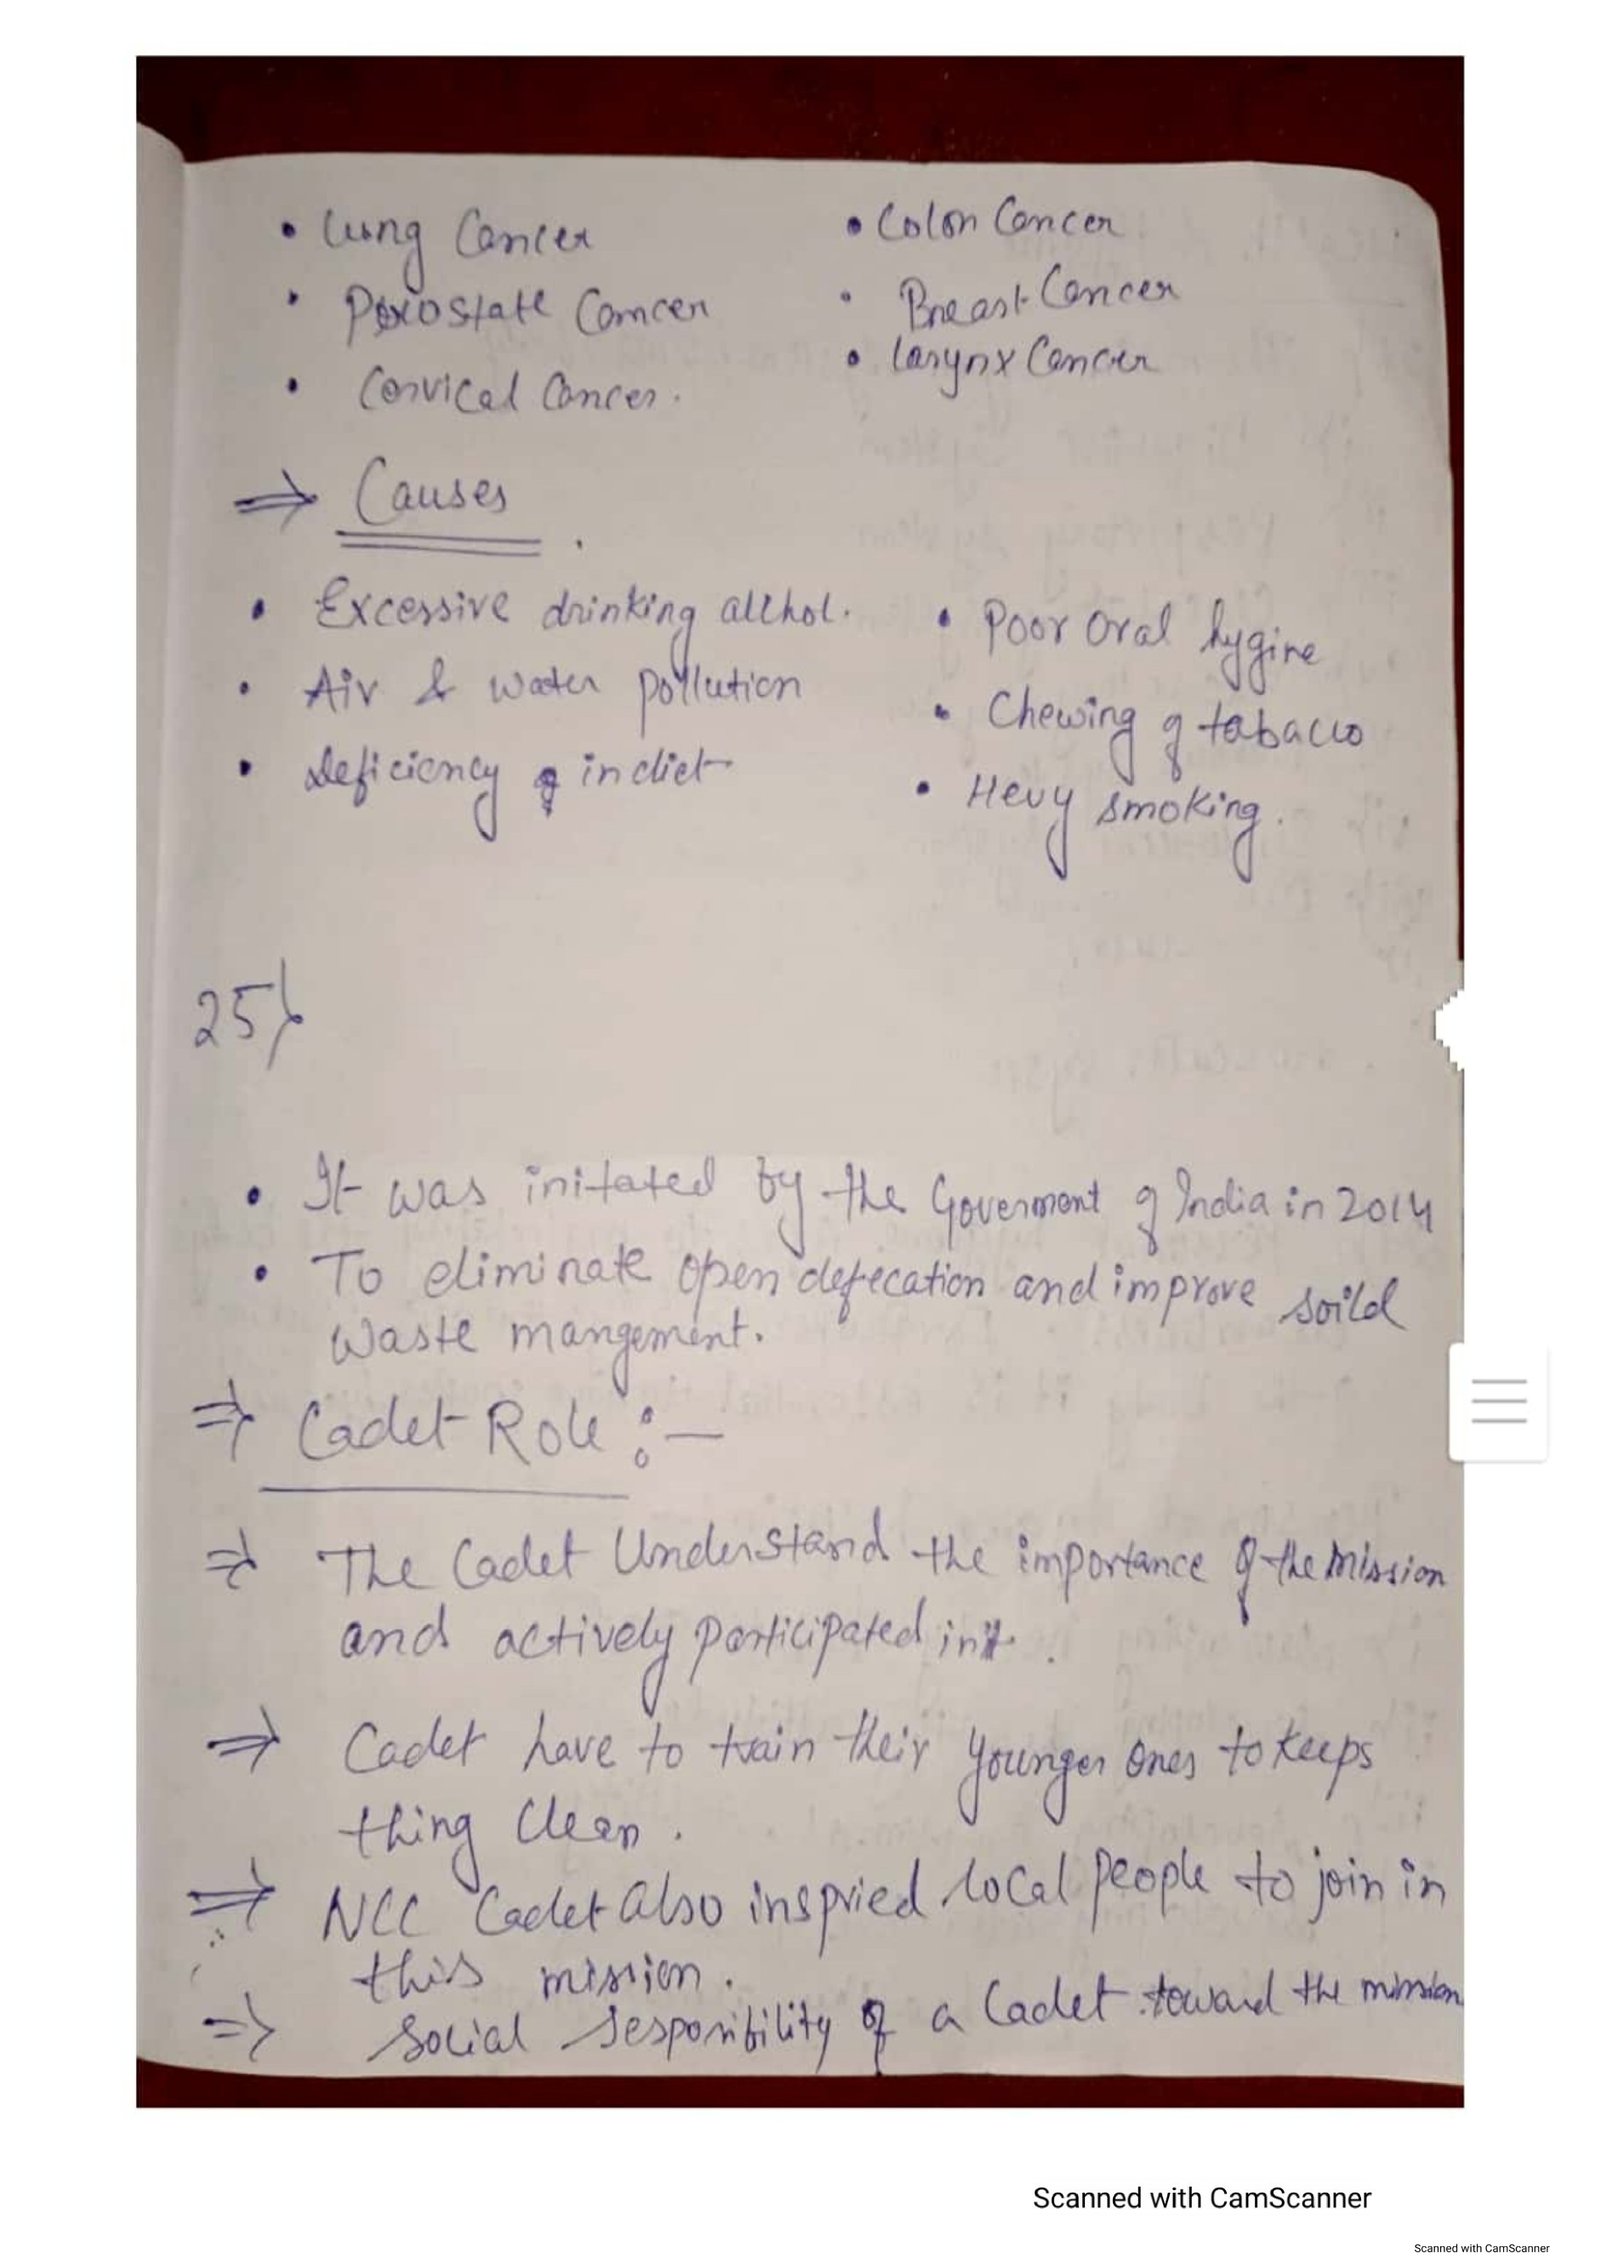 • Lung Cancer
• Colon Cancer
• Prostate Cancer
• Breast Cancer
• Cervical Cancer.
• Larynx Cancer
⇒ Causes
• Excessive drinking allhol.
• Poor oral hygine
• Air & water pollution
• Chewing of tabacco
• Deficiency of in diet
• Hevy smoking.
25)
• It was initated by the Goverment of India in 2014
• To eliminate open defecation and improve soild
waste mangement.
⇒ Cadet Role :-
⇒ The Cadet Understand the importance of the mission
and actively participated in it.
⇒ Cadet have to train their younger ones to keeps
thing clean.
⇒ NCC Cadet also inspried local people to join in
this mission.
⇒ Social sesponibility of a Cadet toward the mission
Scanned with CamScanner
Scanned with CamScanner